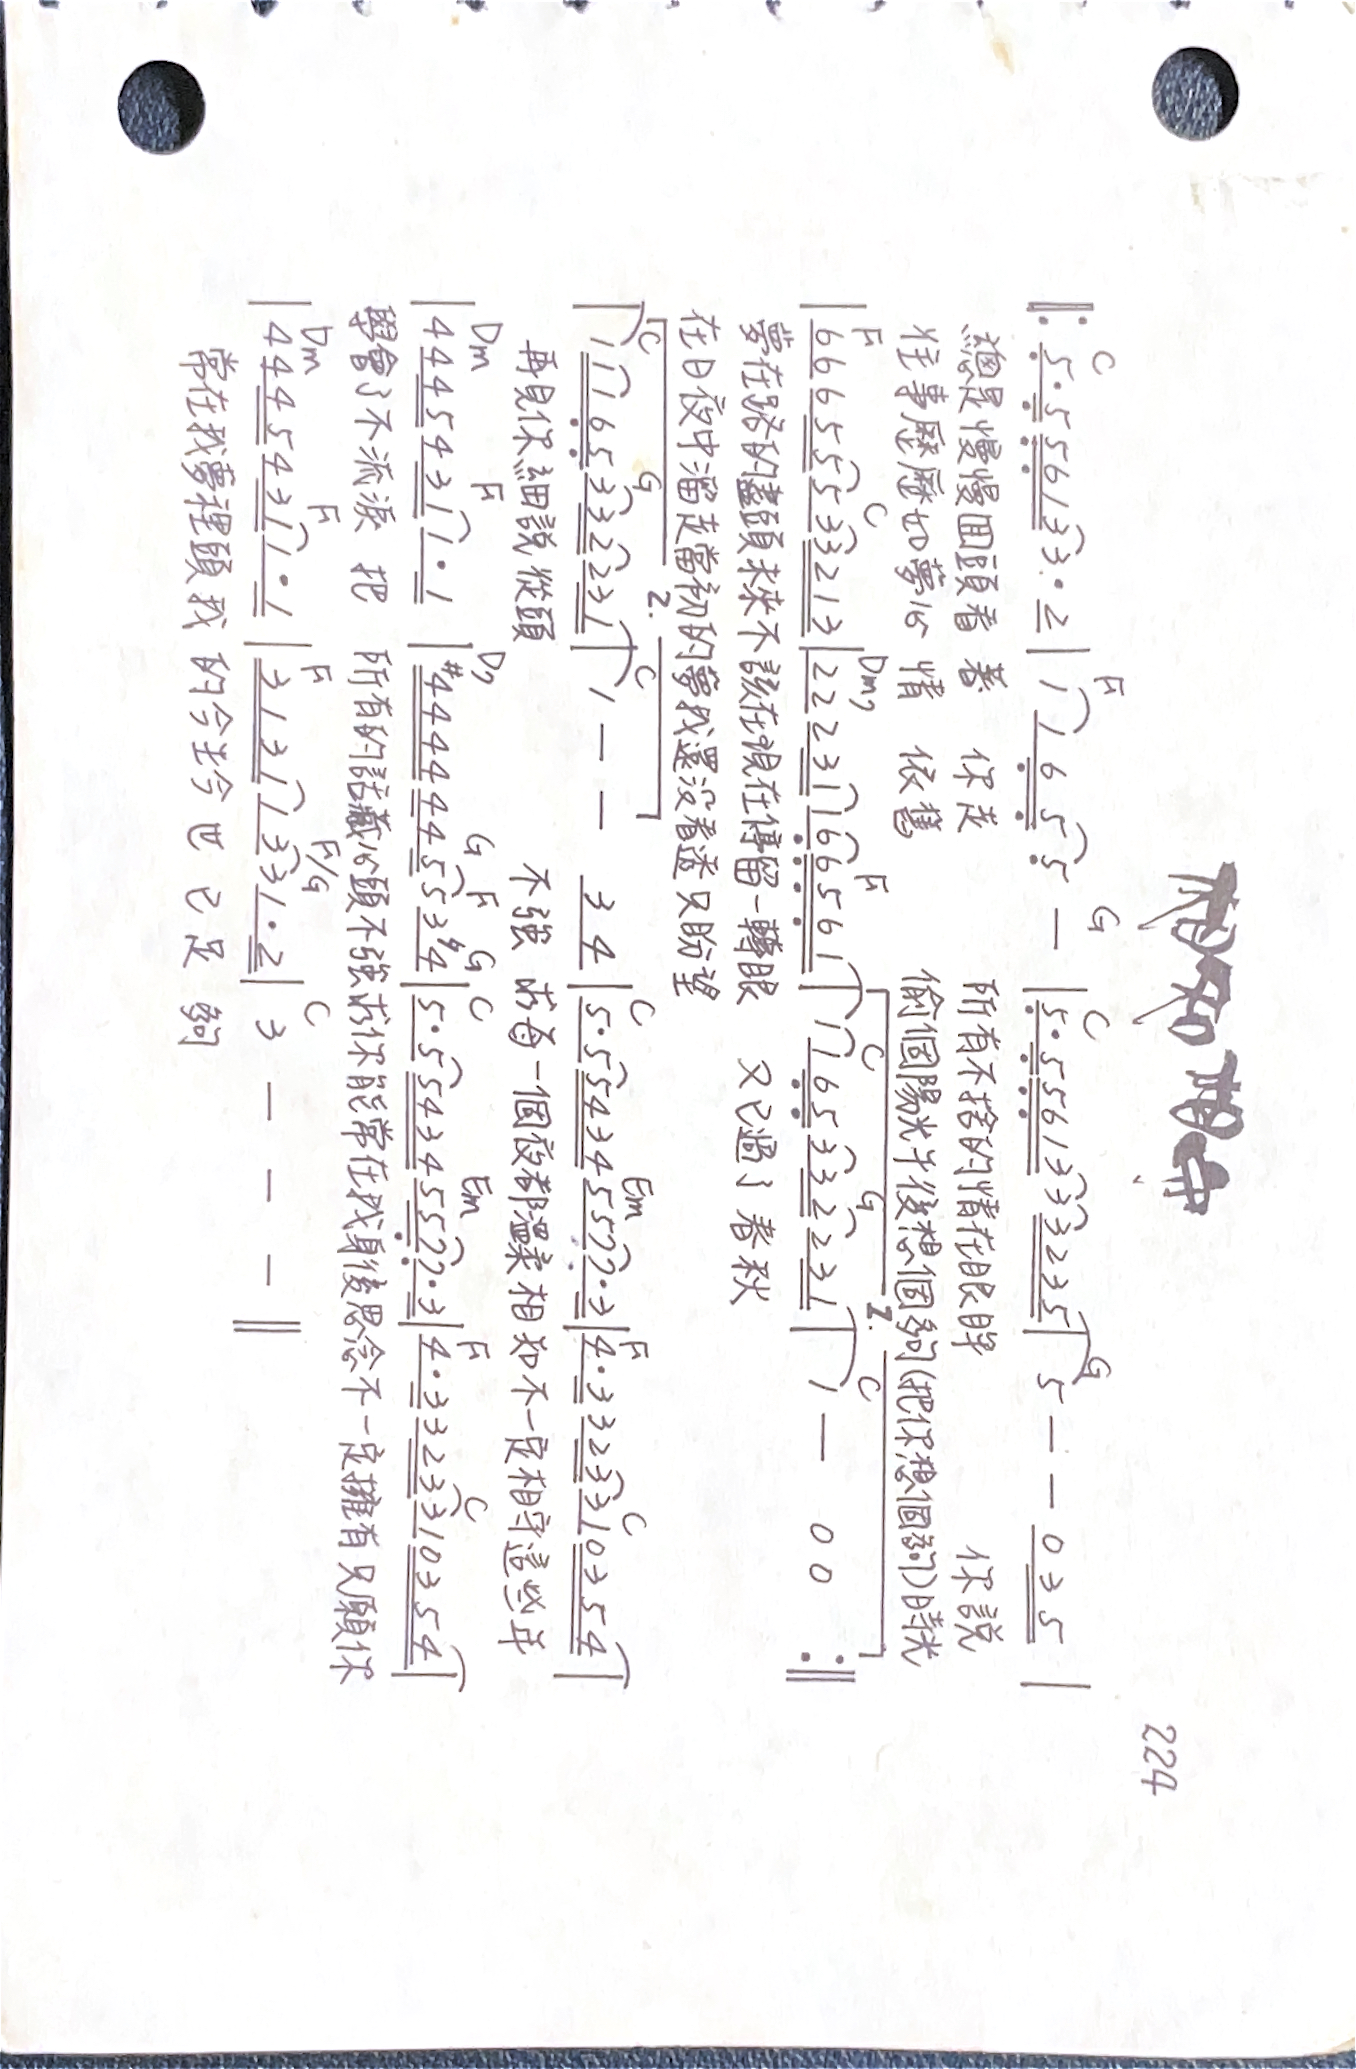 相知相守
224
C F G C G
‖: 5·5 5613 3·2 | 1 1 6 5 5 — | 5·5 5613 3 3235 | 5 — — 0 3 5 |
總是慢慢回頭看 著 你走 所有不捨的情在眼眸 你說
往事歷歷如夢心 情 依舊 偷個陽光午後想個夠(把你想個夠)時光
F C Dm7 F C G 1. C
| 6 6 6 5 5 5 3 3 2 1 3 | 2 2 2 3 1 1 6 6 5 6 1 | 1 1 6 5 3 3 2 2 3 1 | 1 — 0 0 :‖
夢在路的盡頭未來不該在現在停留一轉眼 又已過了春秋
在日夜中溜走當初的夢我還没看透只盼望
C G 2. C C Em F C
| 1 1 1 6 5 3 3 2 2 3 1 | 1 — — 3 4 | 5·5 5 4 3 4 5 5 7 7·3 | 4·3 3 2 3 3 1 0 3 5 4 |
再見你細說從頭 不強 求每一個夜都溫柔相知不一定相守這些年
Dm F D7 G F G C Em F C
| 4 4 4 5 4 3 1 1·1 | #4 4 4 4 4 4 5 5 3 ♮4 | 5·5 5 4 3 4 5 5 7 7·3 | 4·3 3 2 3 3 1 0 3 5 4 |
學會了不流淚 把 所有的話藏心頭不強求你能常在我身後思念不一定擁有只願你
Dm F F F/G C
| 4 4 4 5 4 3 1 1·1 | 3 1 3 1 1 3 3 1·2 | 3 — — — ‖
常在我夢裡頭我 的今生今 世 已 足 夠